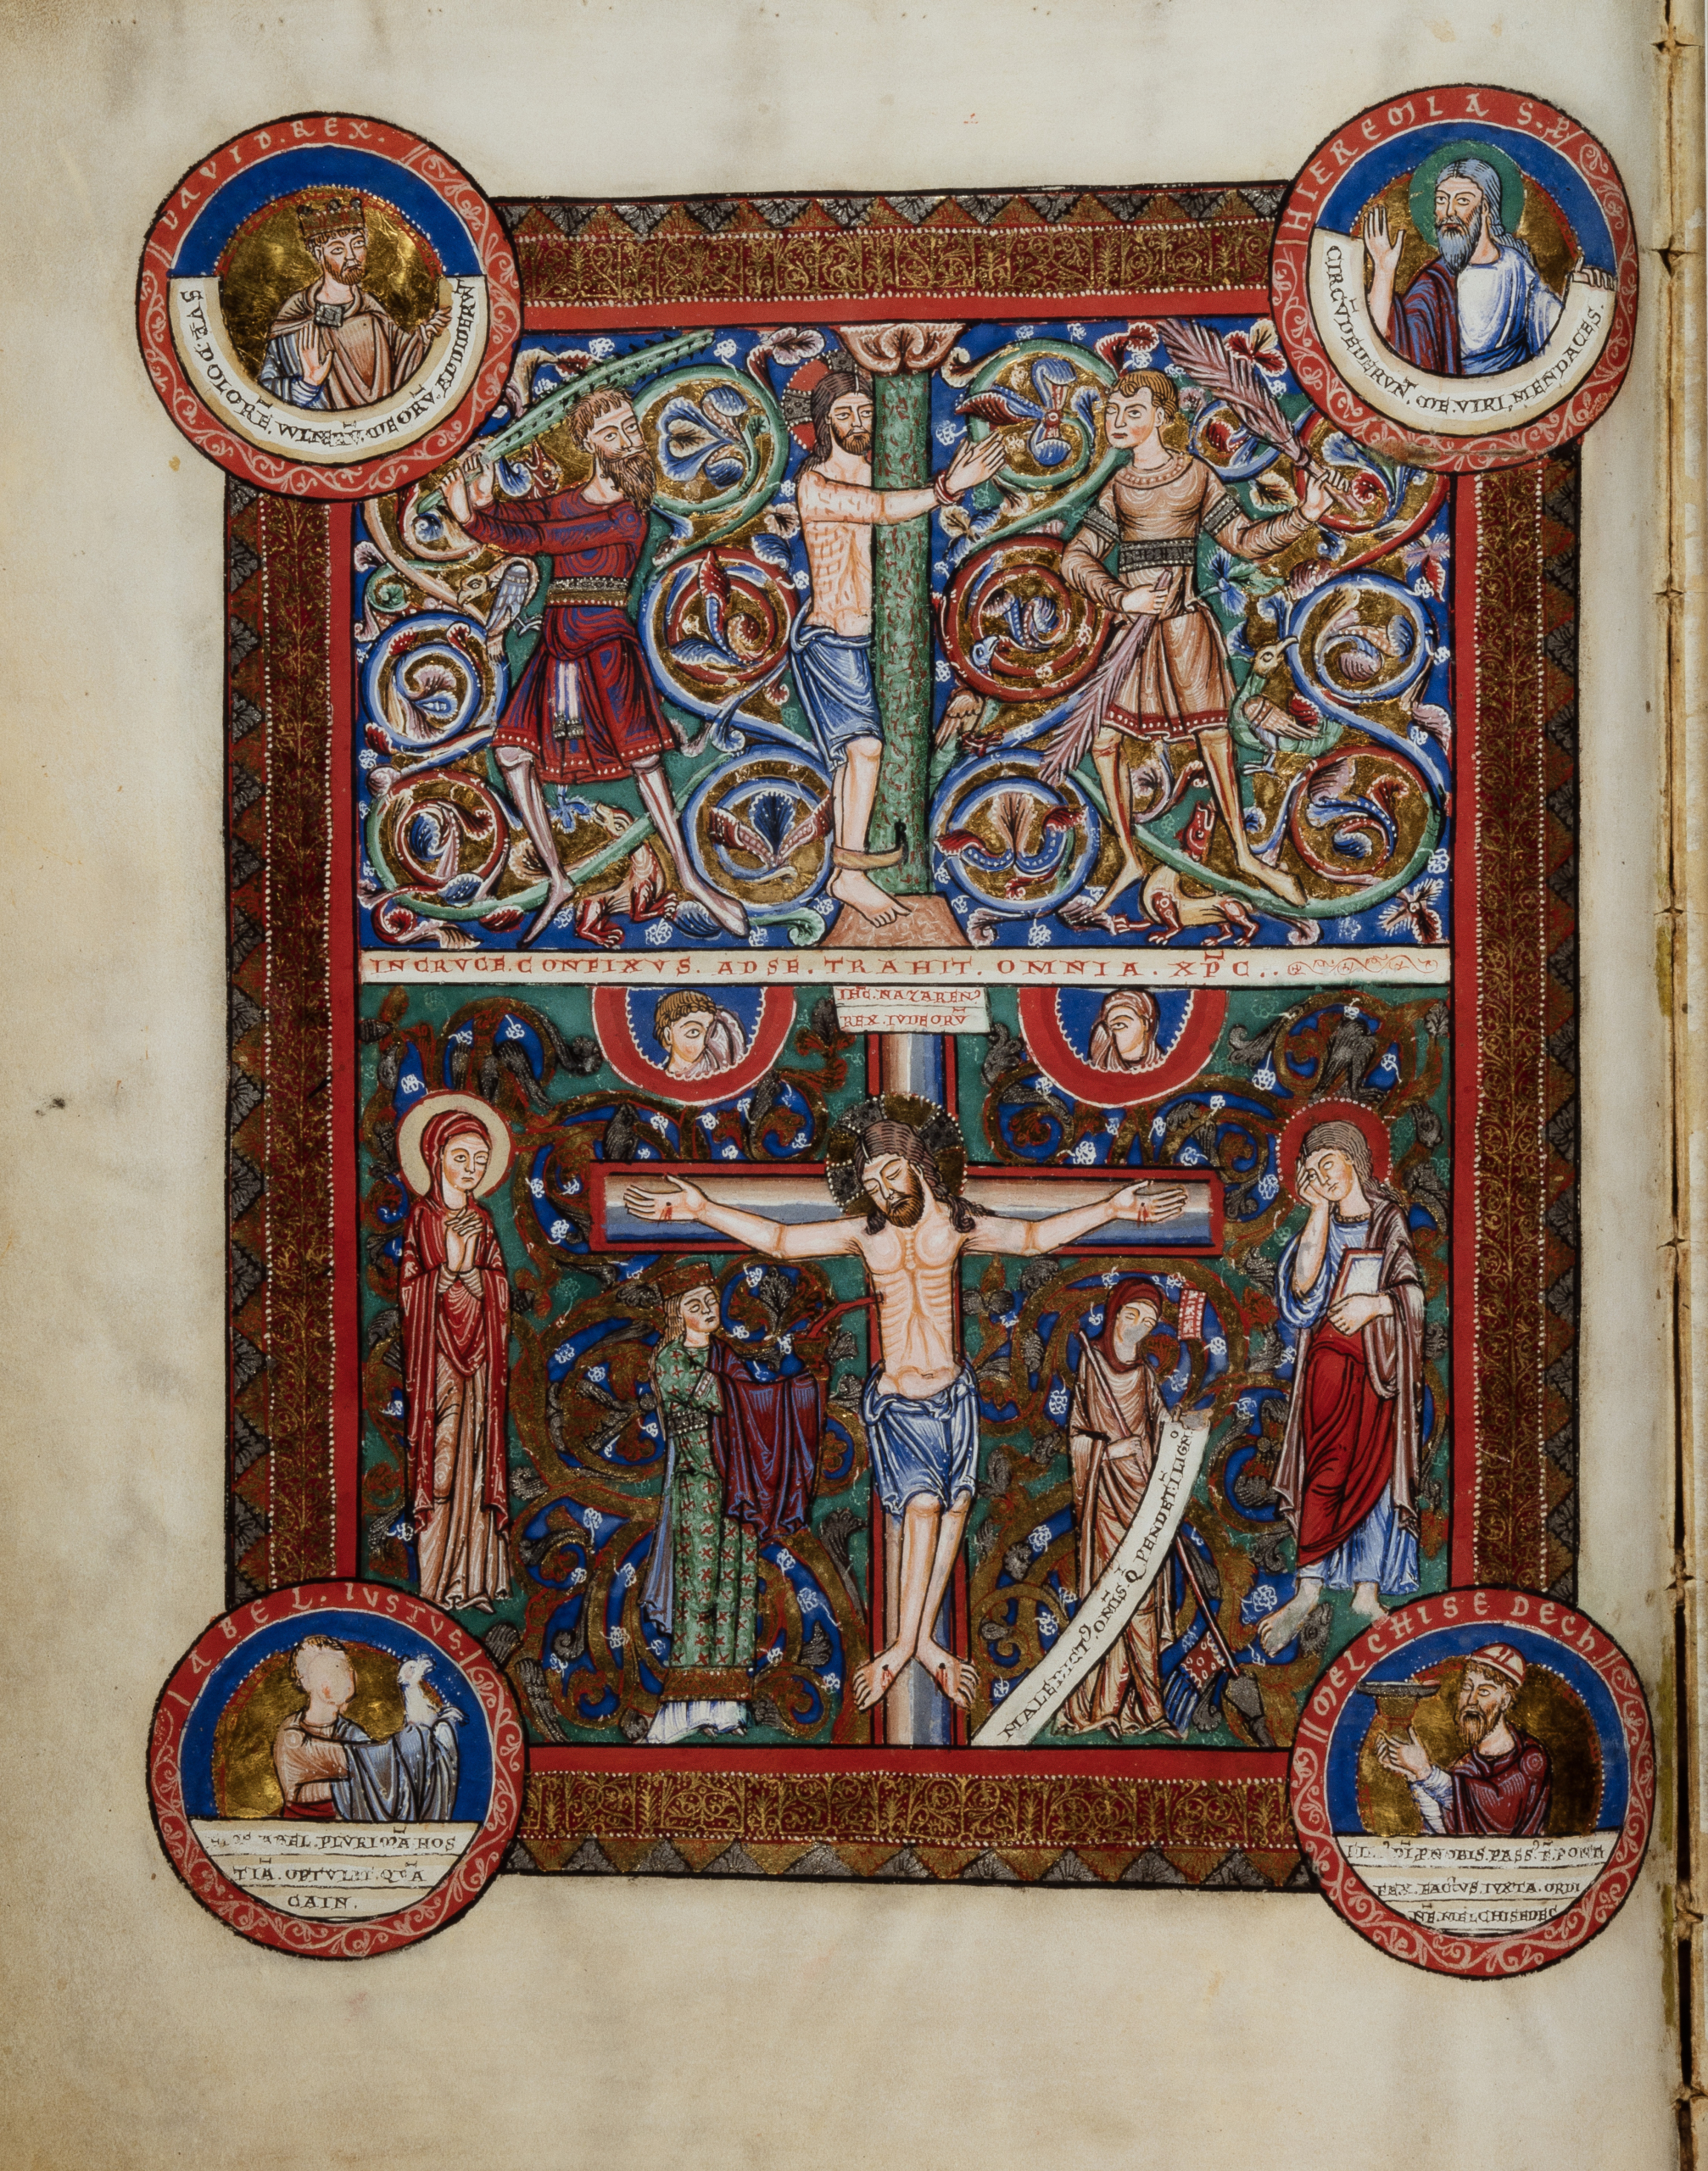 DAVID.REX.
SVP.DOLORĒ.WLNERV̄.MEORV̄.ADDIDERVN̄T
HIEREMIAS.P̄
CIRCV̄DEDERVN̄T.ME.VIRI.MENDACES.
INCRVCE.CONFIXVS.ADSE.TRAHIT.OMNIA.XP̄C..
IHC̄.NAZAREN⁹
REX.IVDEORV̄
MALEDICT⁹.OM̄IS.Q.PENDET.Ī.LIGNO
ABEL.IVSTVS
ABEL.PLVRIMĀ.HOS
TIĀ.OPTVLIT.QVĀ
CAIN.
MELCHISEDECH
PNOBIS.PASS⁹.Ē.PONTI
FEX.FACTVS.IVXTA.ORDI
NĒ.MELCHISEDEC